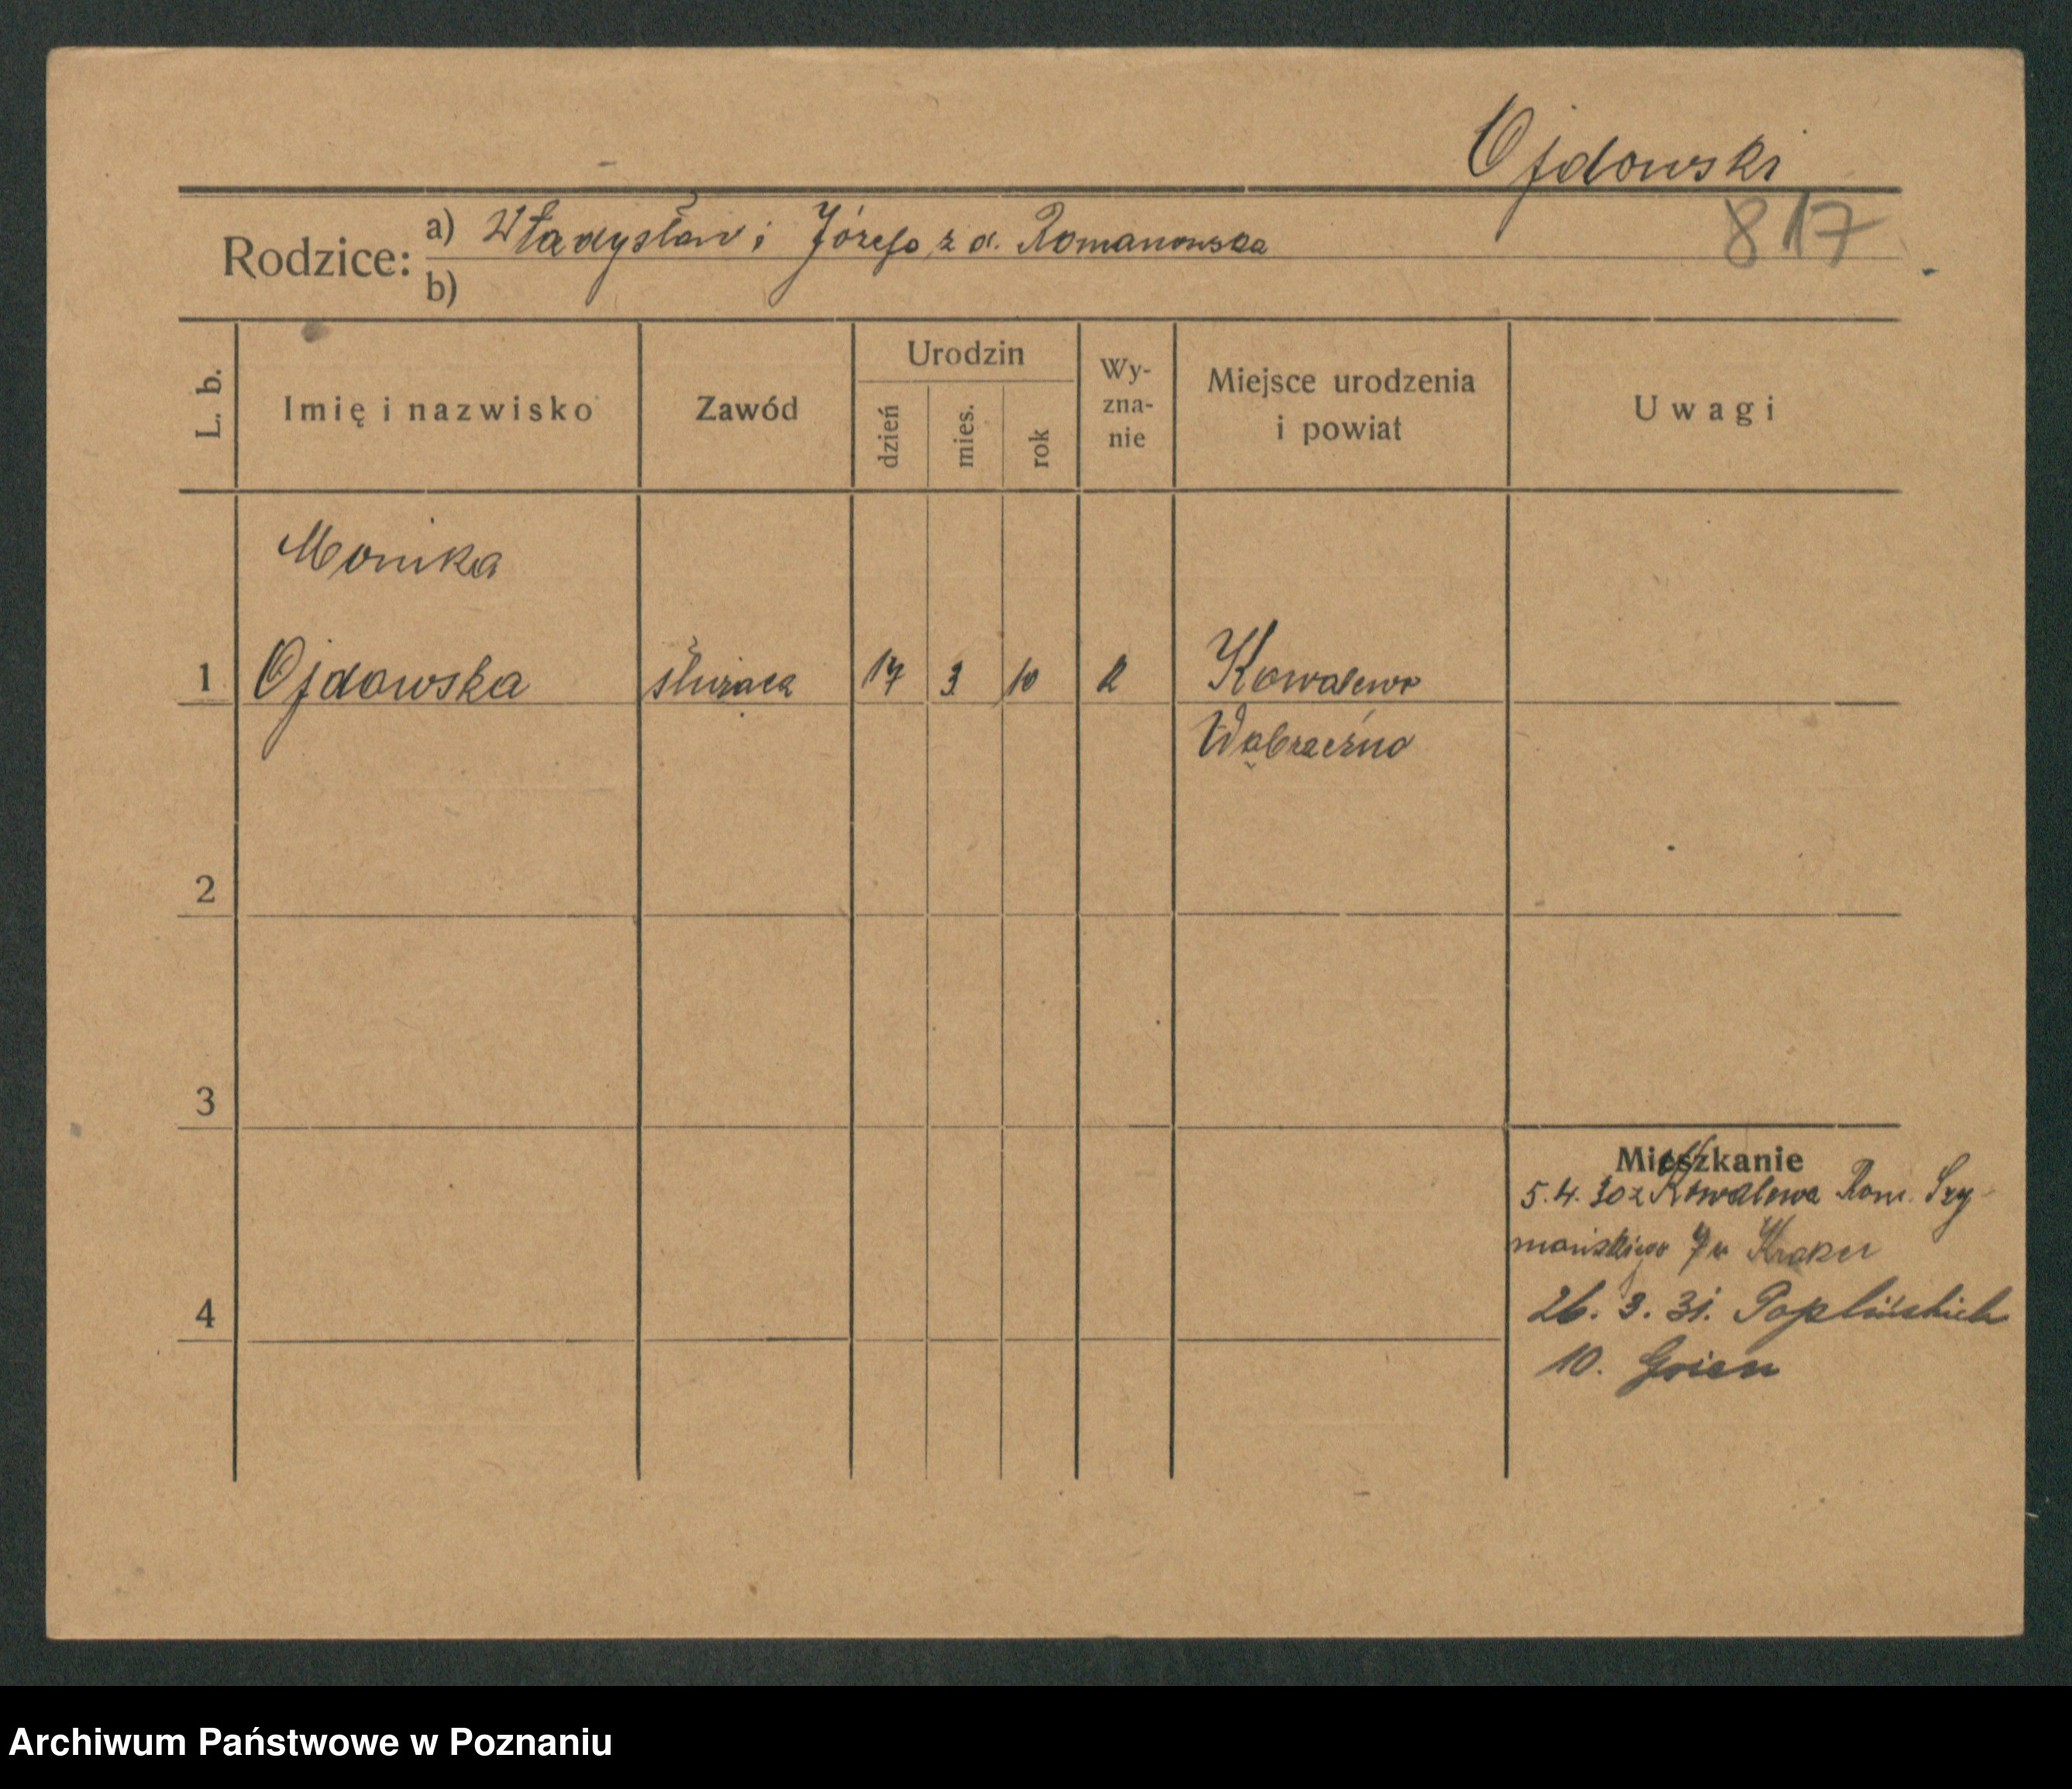 Ojdowski
817
Rodzice: a) Władysław i Józefa z d. Romanowska
b)
L. b. Imię i nazwisko Zawód Urodzin dzień mies. rok Wy-zna-nie Miejsce urodzenia i powiat Uwagi
Monika
1 Ojdowska służąca 17 3 10 R Kowalewo
Wąbrzeźno
2
3
Mieszkanie
5.4.30 z Kowalewa Rom. Szy-
mańskiego 7 u
4 26. 3. 31. Poplińskich
10.
Archiwum Państwowe w Poznaniu